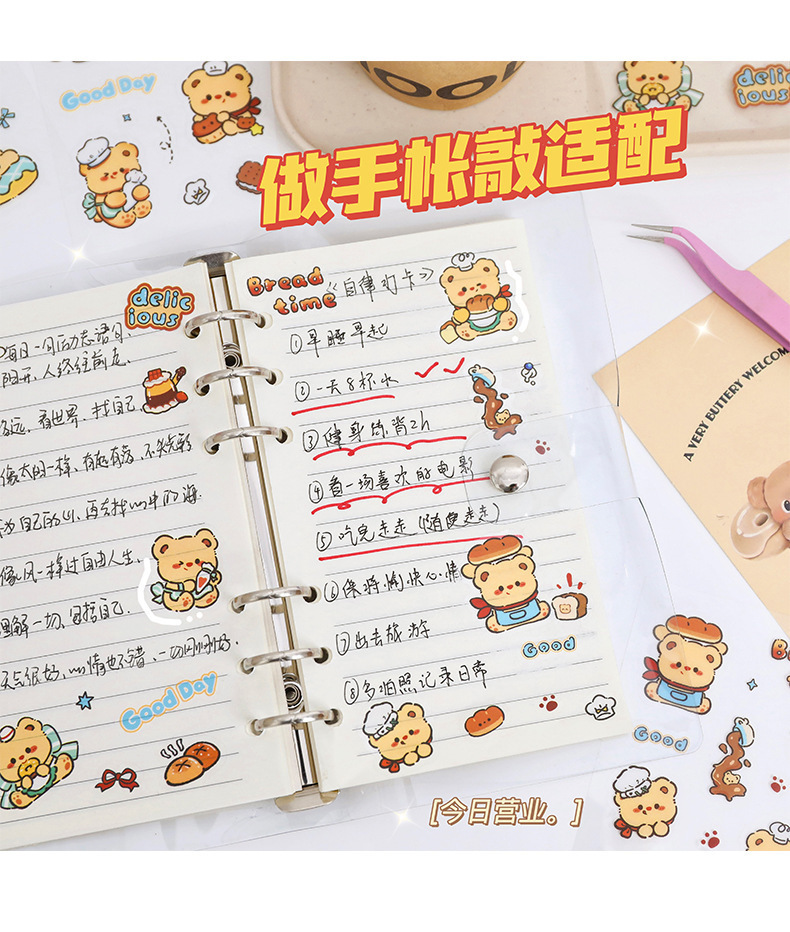 Good Day
OOL
delic
ious
做手帐敲适配
A VERY BUTTERY WELCOM
delic
ious
每日一句励志语句、
阳开、人终往前走、
看世界、找自己、
像太阳一样、有起有落、不失光彩
为自己的心、再去找心中的海.
像风一样过自由人生、
理解一切、包括自己.
天气很好、心情也不错、一切刚刚好.
Good Day
Bread
time
《自律打卡》
①早睡早起
②一天8杯水
③健身练背2h
④看一场喜欢的电影
⑤吃完走走(随便走走)
⑥保持愉快心情
⑦出去旅游
⑧多拍照记录日常
Good
Good
[今日营业。]